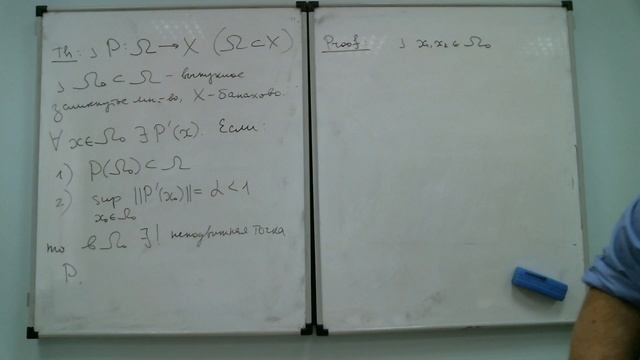 Th: ɔ P: Ω → X (Ω ⊂ X)
ɔ Ω₀ ⊂ Ω - выпуклое
замкнутое мн-во, X - банахово.
∀ x ∈ Ω₀ ∃ P'(x). Если:
1) P(Ω₀) ⊂ Ω
2) sup ||P'(x₀)|| = α < 1
x₀ ∈ Ω₀
то в Ω₀ ∃! неподвижная точка
P.
Proof: ɔ x₁, x₂ ∈ Ω₀